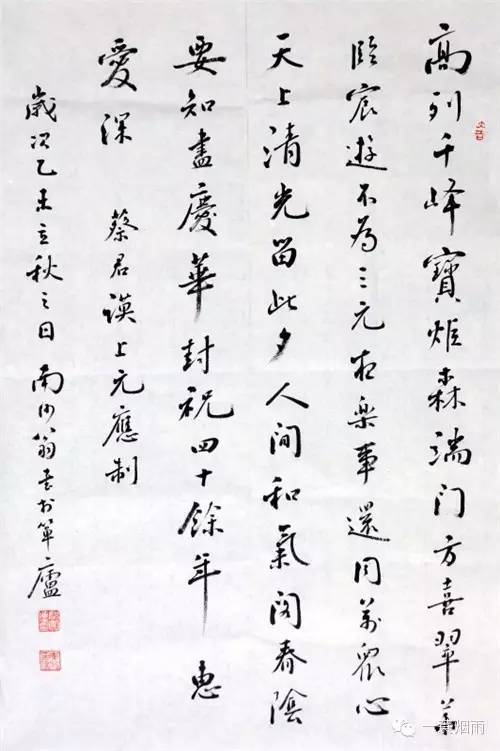 高列千峰寶炬森端门方喜翠華
臨宸遊不為三元樂事還同萬眾心
天上清光留此夕人间和氣阁春陰
要知盡慶華封祝四十餘年惠
愛深 蔡君謨上元應制
歲次乙未立秋之日南沙翁書於箪廬
一蓑烟雨